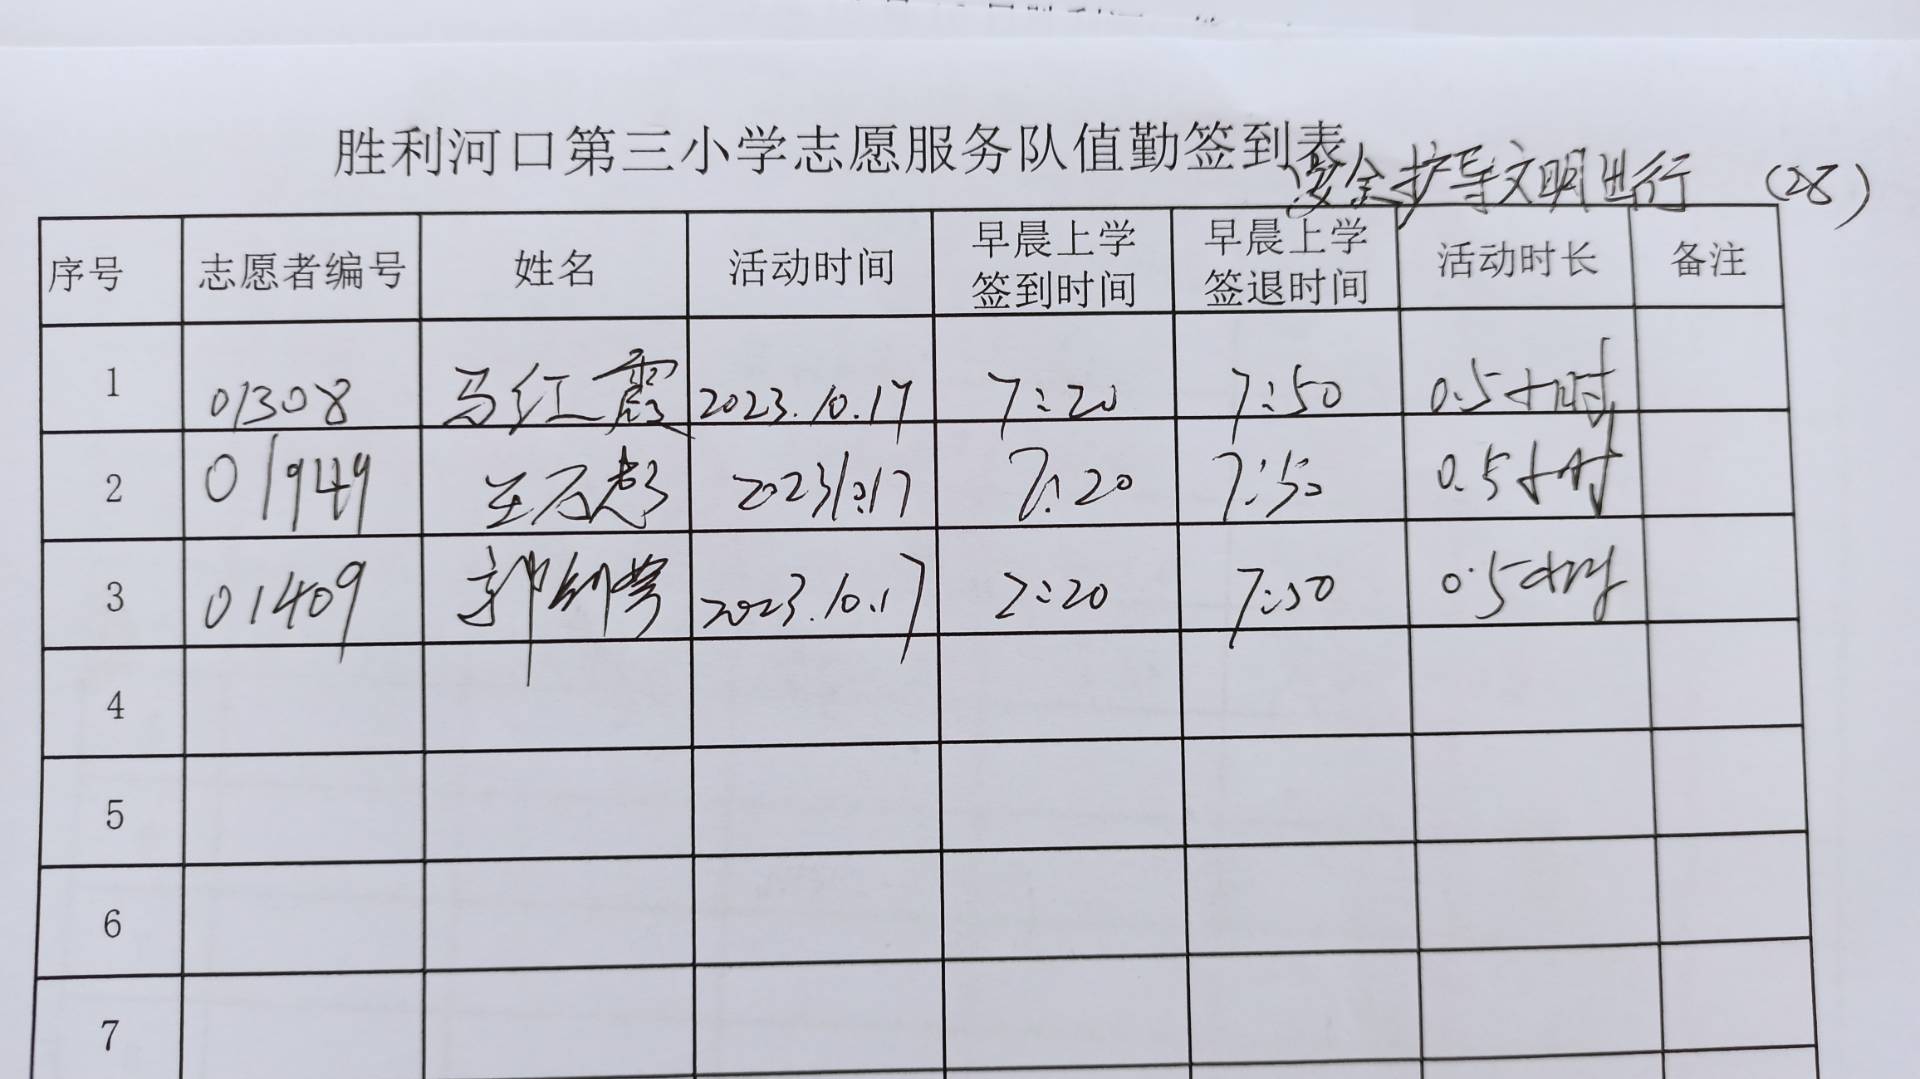 胜利河口第三小学志愿服务队值勤签到表
安全护导文明出行 (28)
序号 志愿者编号 姓名 活动时间 早晨上学签到时间 早晨上学签退时间 活动时长 备注
1 01308 马红霞 2023.10.17 7:20 7:50 0.5小时
2 01949 2023.10.17 7:20 7:50 0.5小时
3 01409 2023.10.17 7:20 7:50 0.5小时
4
5
6
7